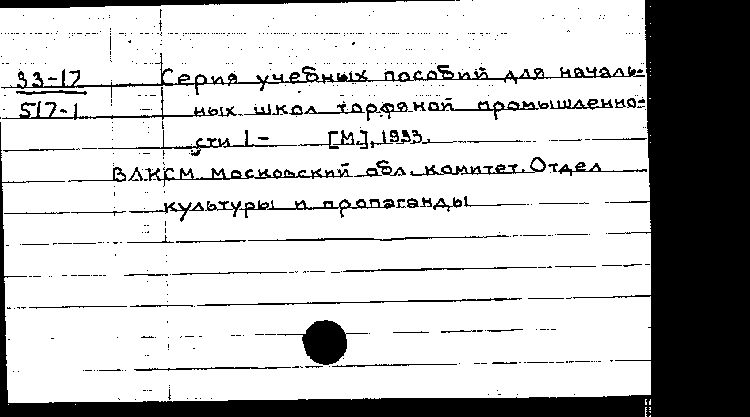 33-17
517-1
Серия учебных пособий для началь-
ных школ торфяной промышленно-
сти 1- [М.], 1933.
ВЛКСМ Московский обл. комитет. Отдел
культуры и пропаганды